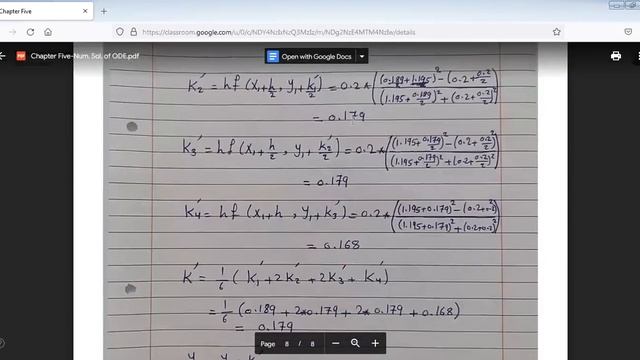 Chapter Five
https://classroom.google.com/u/0/c/NDY4NzIxNzQ3MzIz/m/NDg2NzE4MTM4NzIw/details
Chapter Five-Num. Sol. of ODE.pdf
Open with Google Docs
K₂' = hf(x₁+h/2, y₁+k₁'/2) = 0.2*((0.189/2+1.195)²-(0.2+0.2/2)²)/((1.195+0.189/2)²+(0.2+0.2/2)²)
= 0.179
K₃' = hf(x₁+h/2, y₁+k₂'/2) = 0.2*((1.195+0.179/2)²-(0.2+0.2/2)²)/((1.195+0.179/2)²+(0.2+0.2/2)²)
= 0.179
K₄' = hf(x₁+h, y₁+k₃') = 0.2*((1.195+0.179)²-(0.2+0.2)²)/((1.195+0.179)²+(0.2+0.2)²)
= 0.168
K' = 1/6 (K₁'+2K₂'+2K₃'+K₄')
= 1/6 (0.189+2*0.179+2*0.179+0.168)
= 0.179
Page 8 / 8